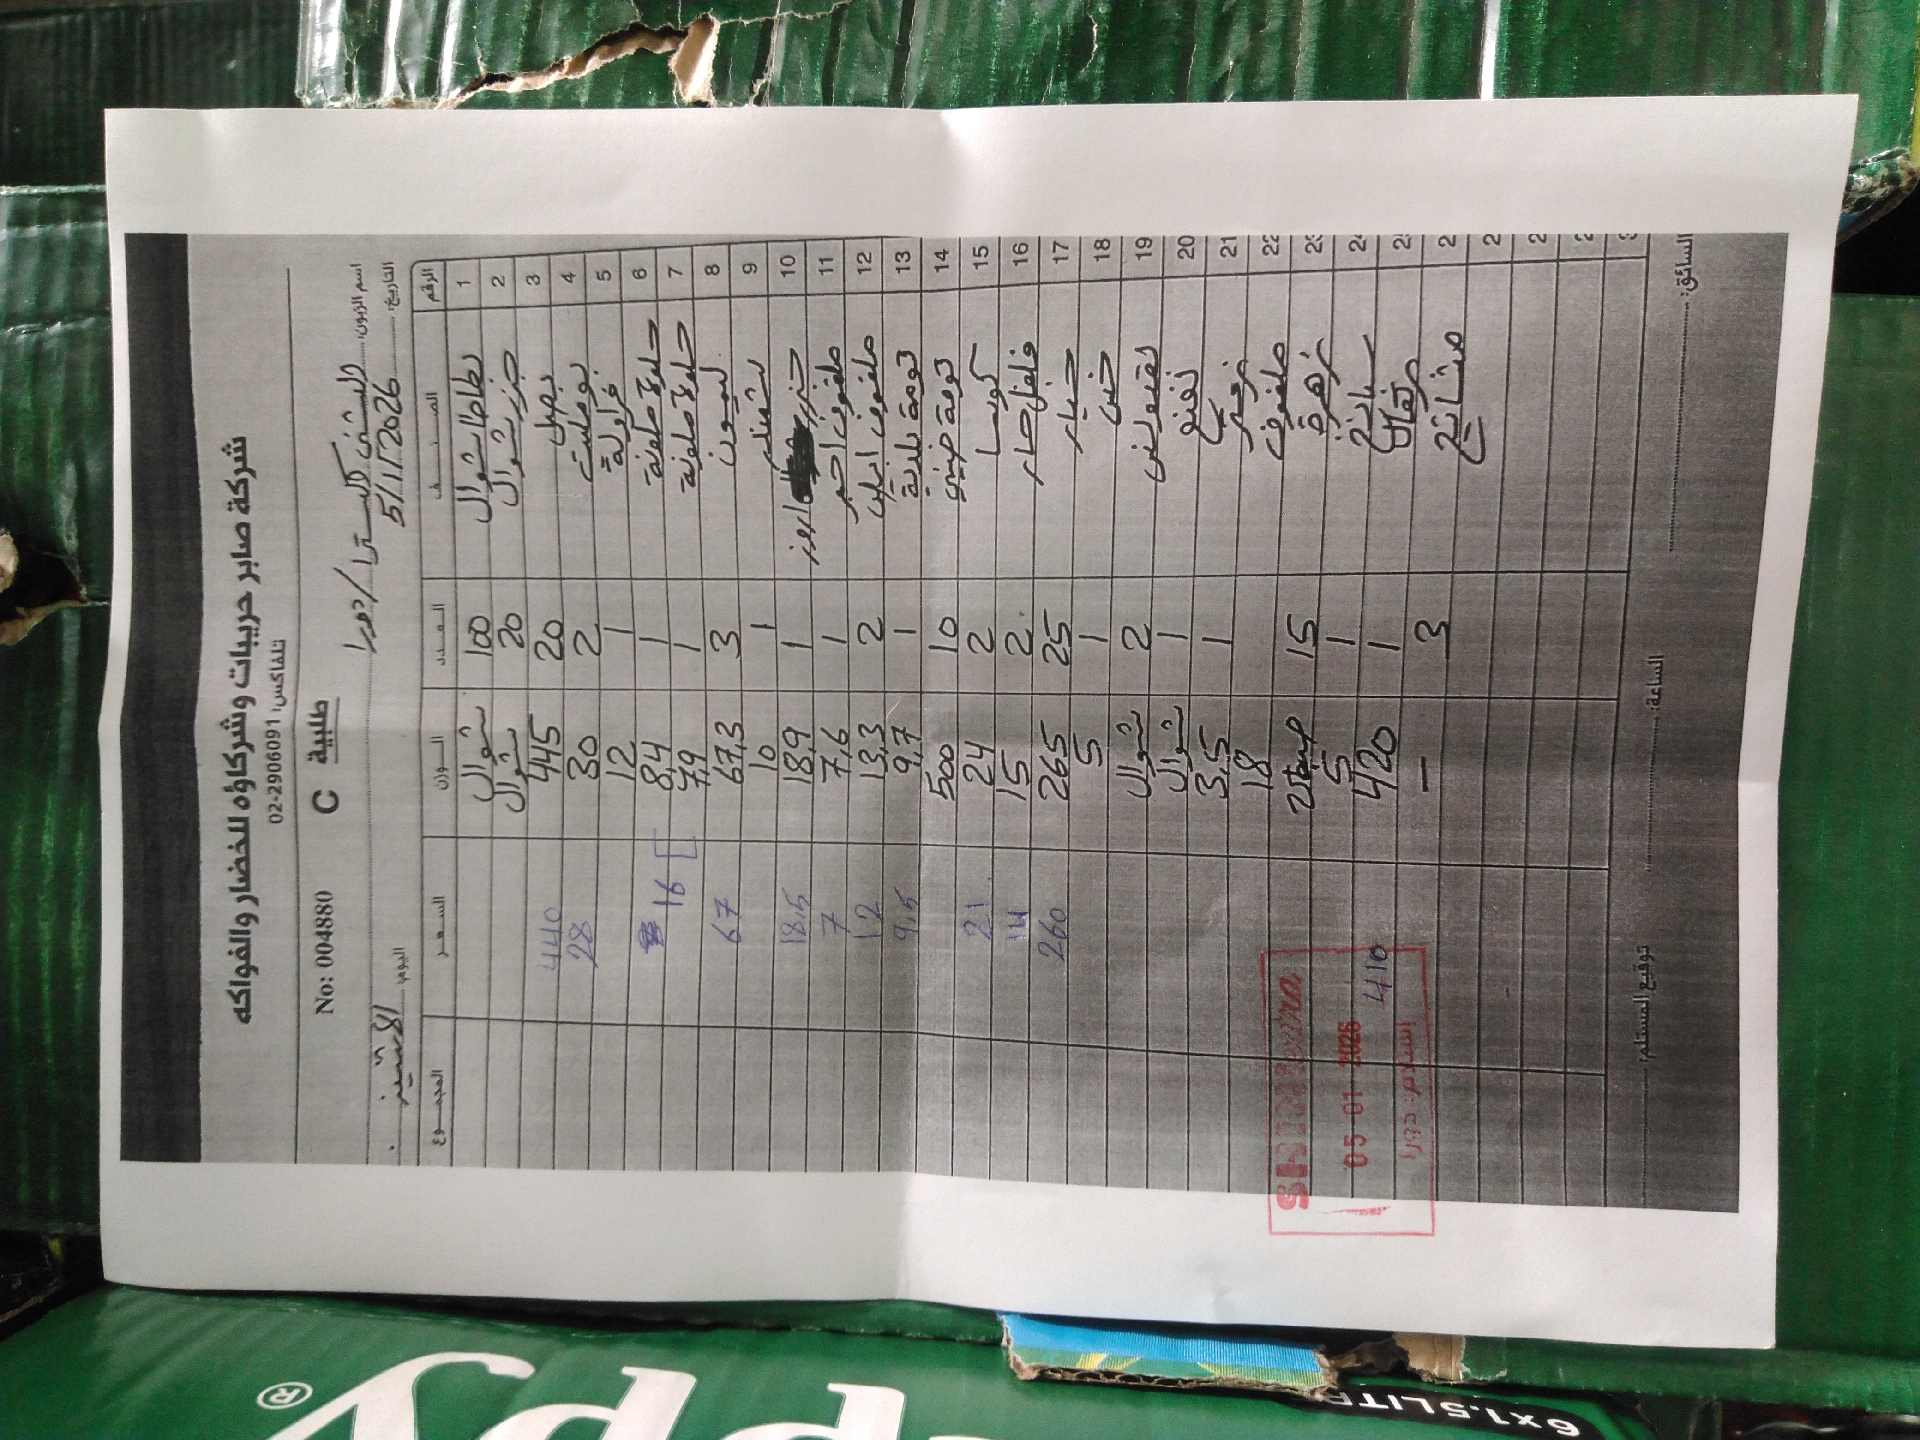 شركة صابر حريبات وشركاؤه للخضار والفواكه
تلفاكس: 02-2906091
No: 004880 C طلبية
اسم الزبون: الشني اكسترا / دورا
التاريخ: 5/1/2026 اليوم: الاثنين
الرقم الصنف العدد الوزن السعر المجموع
1 بطاطا شوال 100 شوال
2 جزر شوال 20 شوال
3 بصل 20 445 440
4 بوملت 2 30 28
5 فراولة 1 12
6 حلوة ملونة 1 8,4 16
7 حلوة ملونة 1 7,9
8 ليمون 3 67,3 67
9 شمندر 1 10
10 جزر 1 18,9 18,5
11 ملفوف احمر 1 7,6 7
12 ملفوف ابيض 2 13,3 12
13 ثومة بلدية 1 9,7 9,5
14 ثومة صيني 10 500
15 كوسا 2 24 21
16 فلفل حار 2 15 14
17 خيار 25 265 260
18 خس 1 5
19 بقدونس 2 شوال
20 نعنع 1 شوال
21 زعتر 1 3,5
ملفوف 18
زهرة 15
سبانخ 1 5
برتقال 1 420 410
مشاتيح 3 –
السائق: الساعة: توقيع المستلم:
Extra
05-01-2026
استلام: دورا
®
ppy
6x1.5LIT